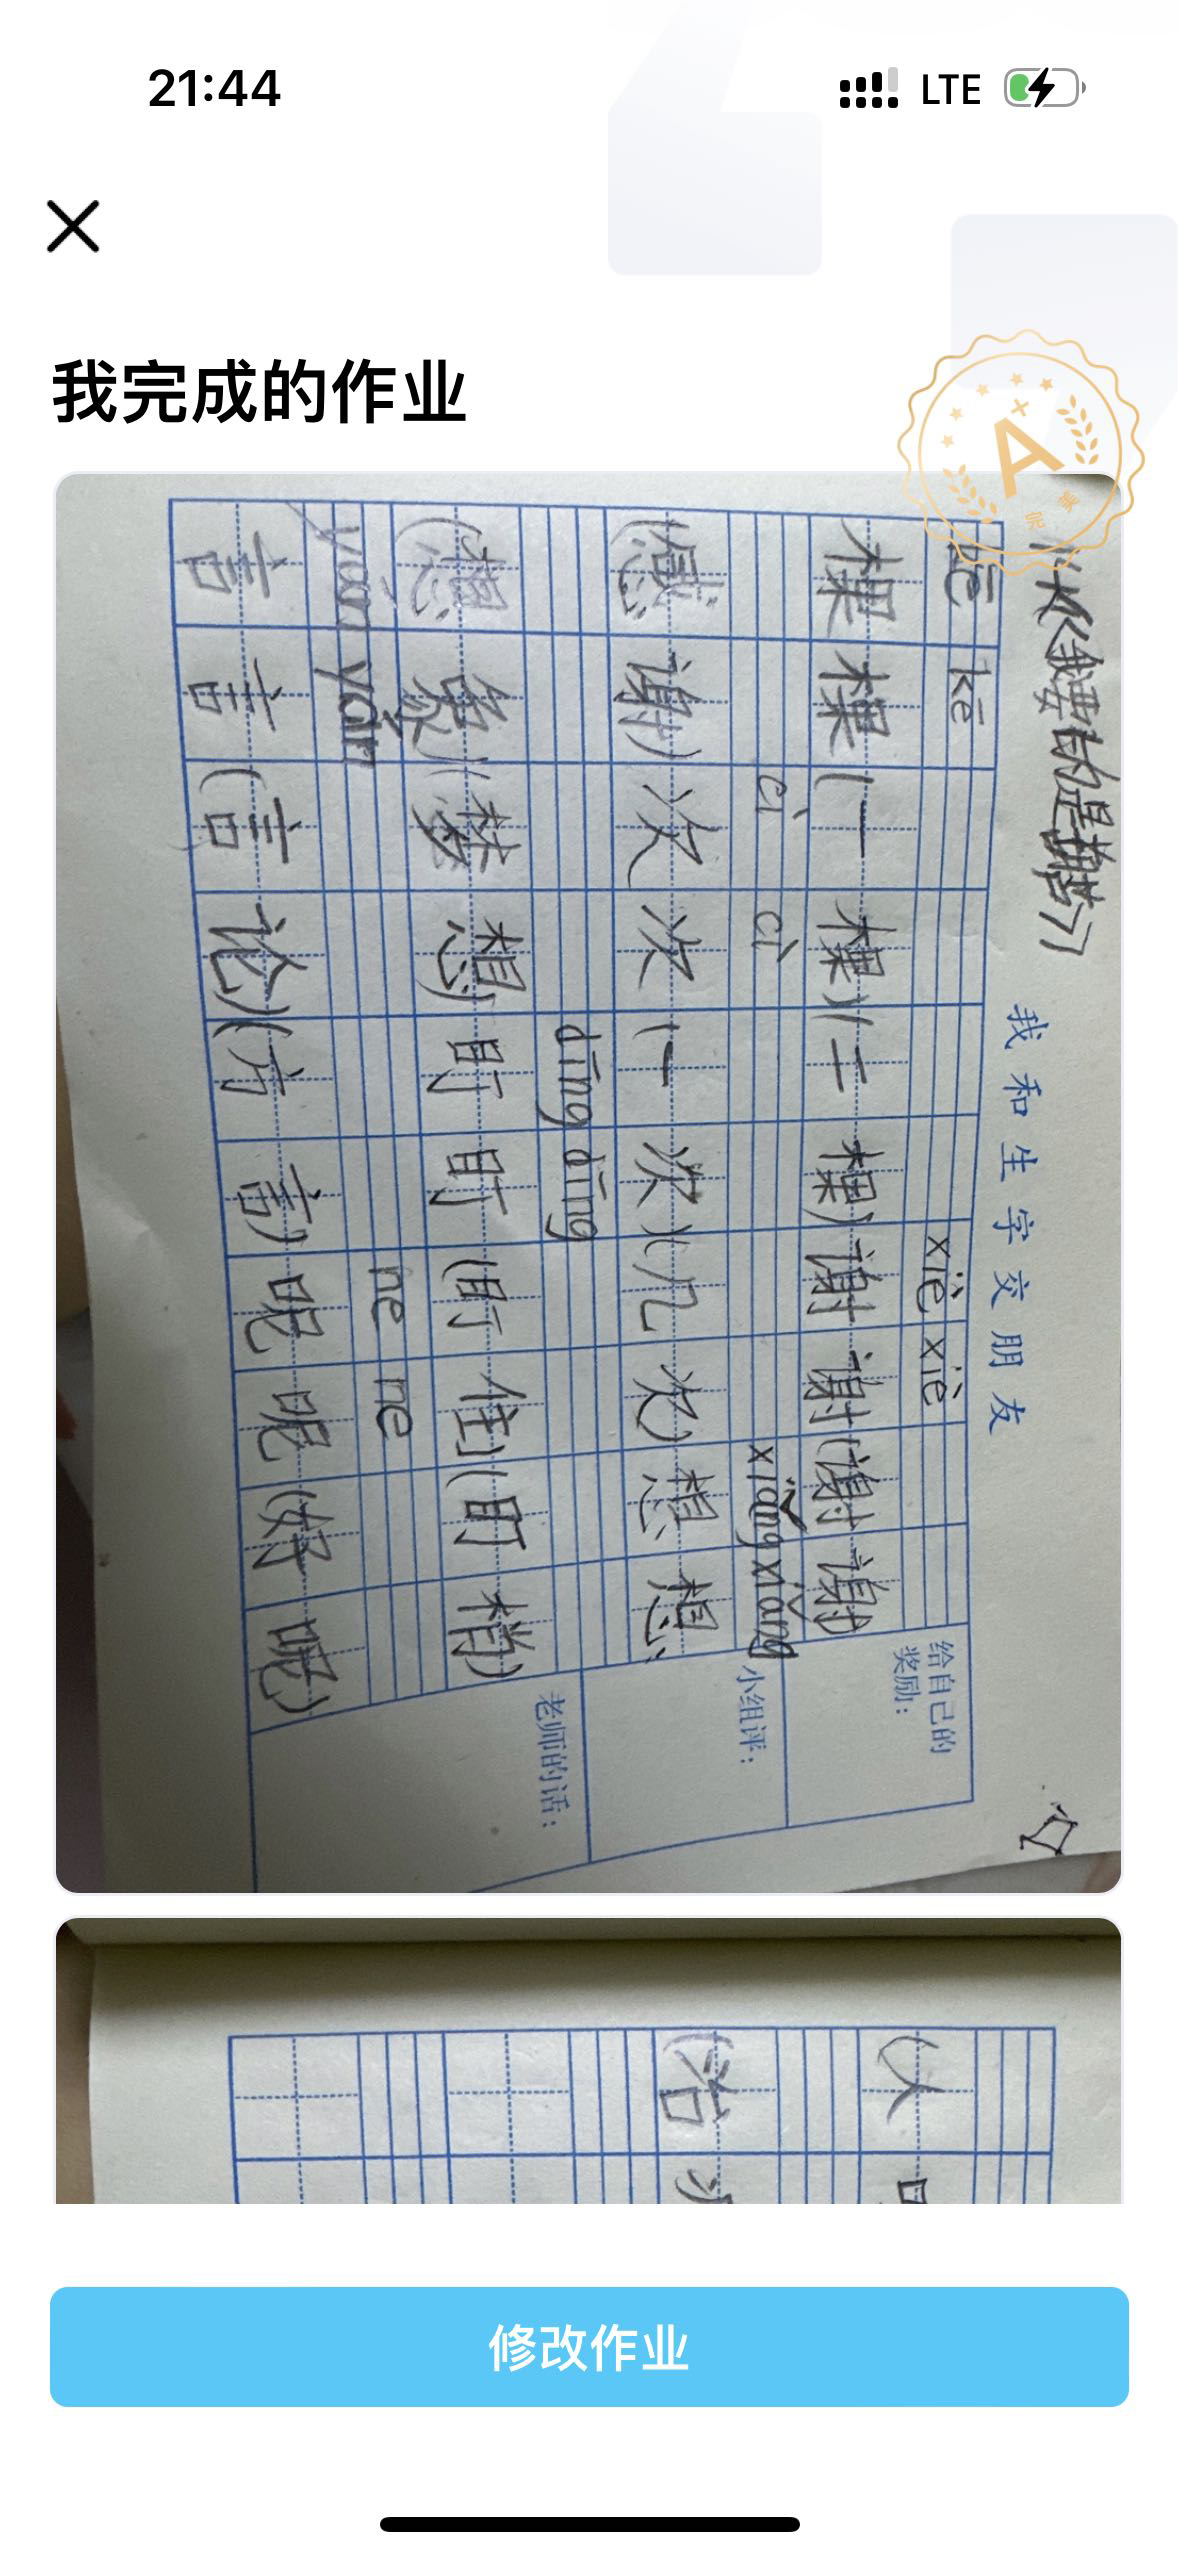 21:44
LTE
我完成的作业
A+
完美
14我要的是葫芦
我和生字交朋友
kē kē xiè xiè
棵棵(一棵)(二棵)谢谢(谢谢
给自己的
奖励:
cì cì xiǎng xiǎng
感谢)次次(一次)(几次)想想
小组评:
dīng dīng
(想象)(梦想)盯盯(盯住)(盯梢)
老师的话:
yán yán ne ne
言言(言论)(方言)呢呢(好呢)
(人
(治
修改作业